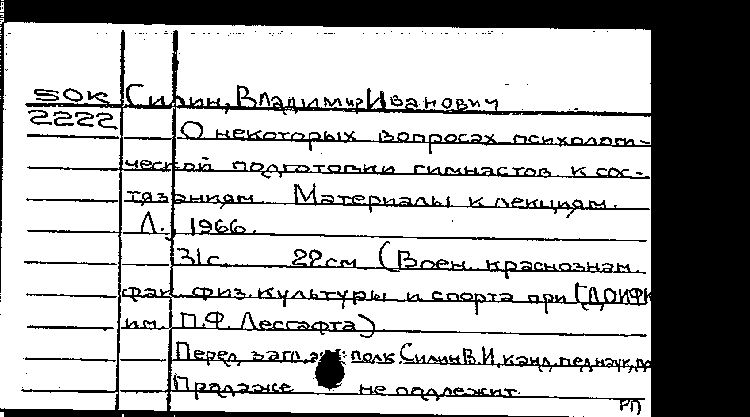 50К Силин, Владимир Иванович
2222
О некоторых вопросах психологи-
ческой подготовки гимнастов к сос-
тязаниям. Материалы к лекциям.
Л., 1966.
31с. 22см (Воен. краснознам.
фак. физ. культуры и спорта при ГДОИФК
им. П.Ф. Лесгафта)
Перед загл. авт: полк. Силин В.И, канд. пед наук, до
Продаже не подлежит
РП